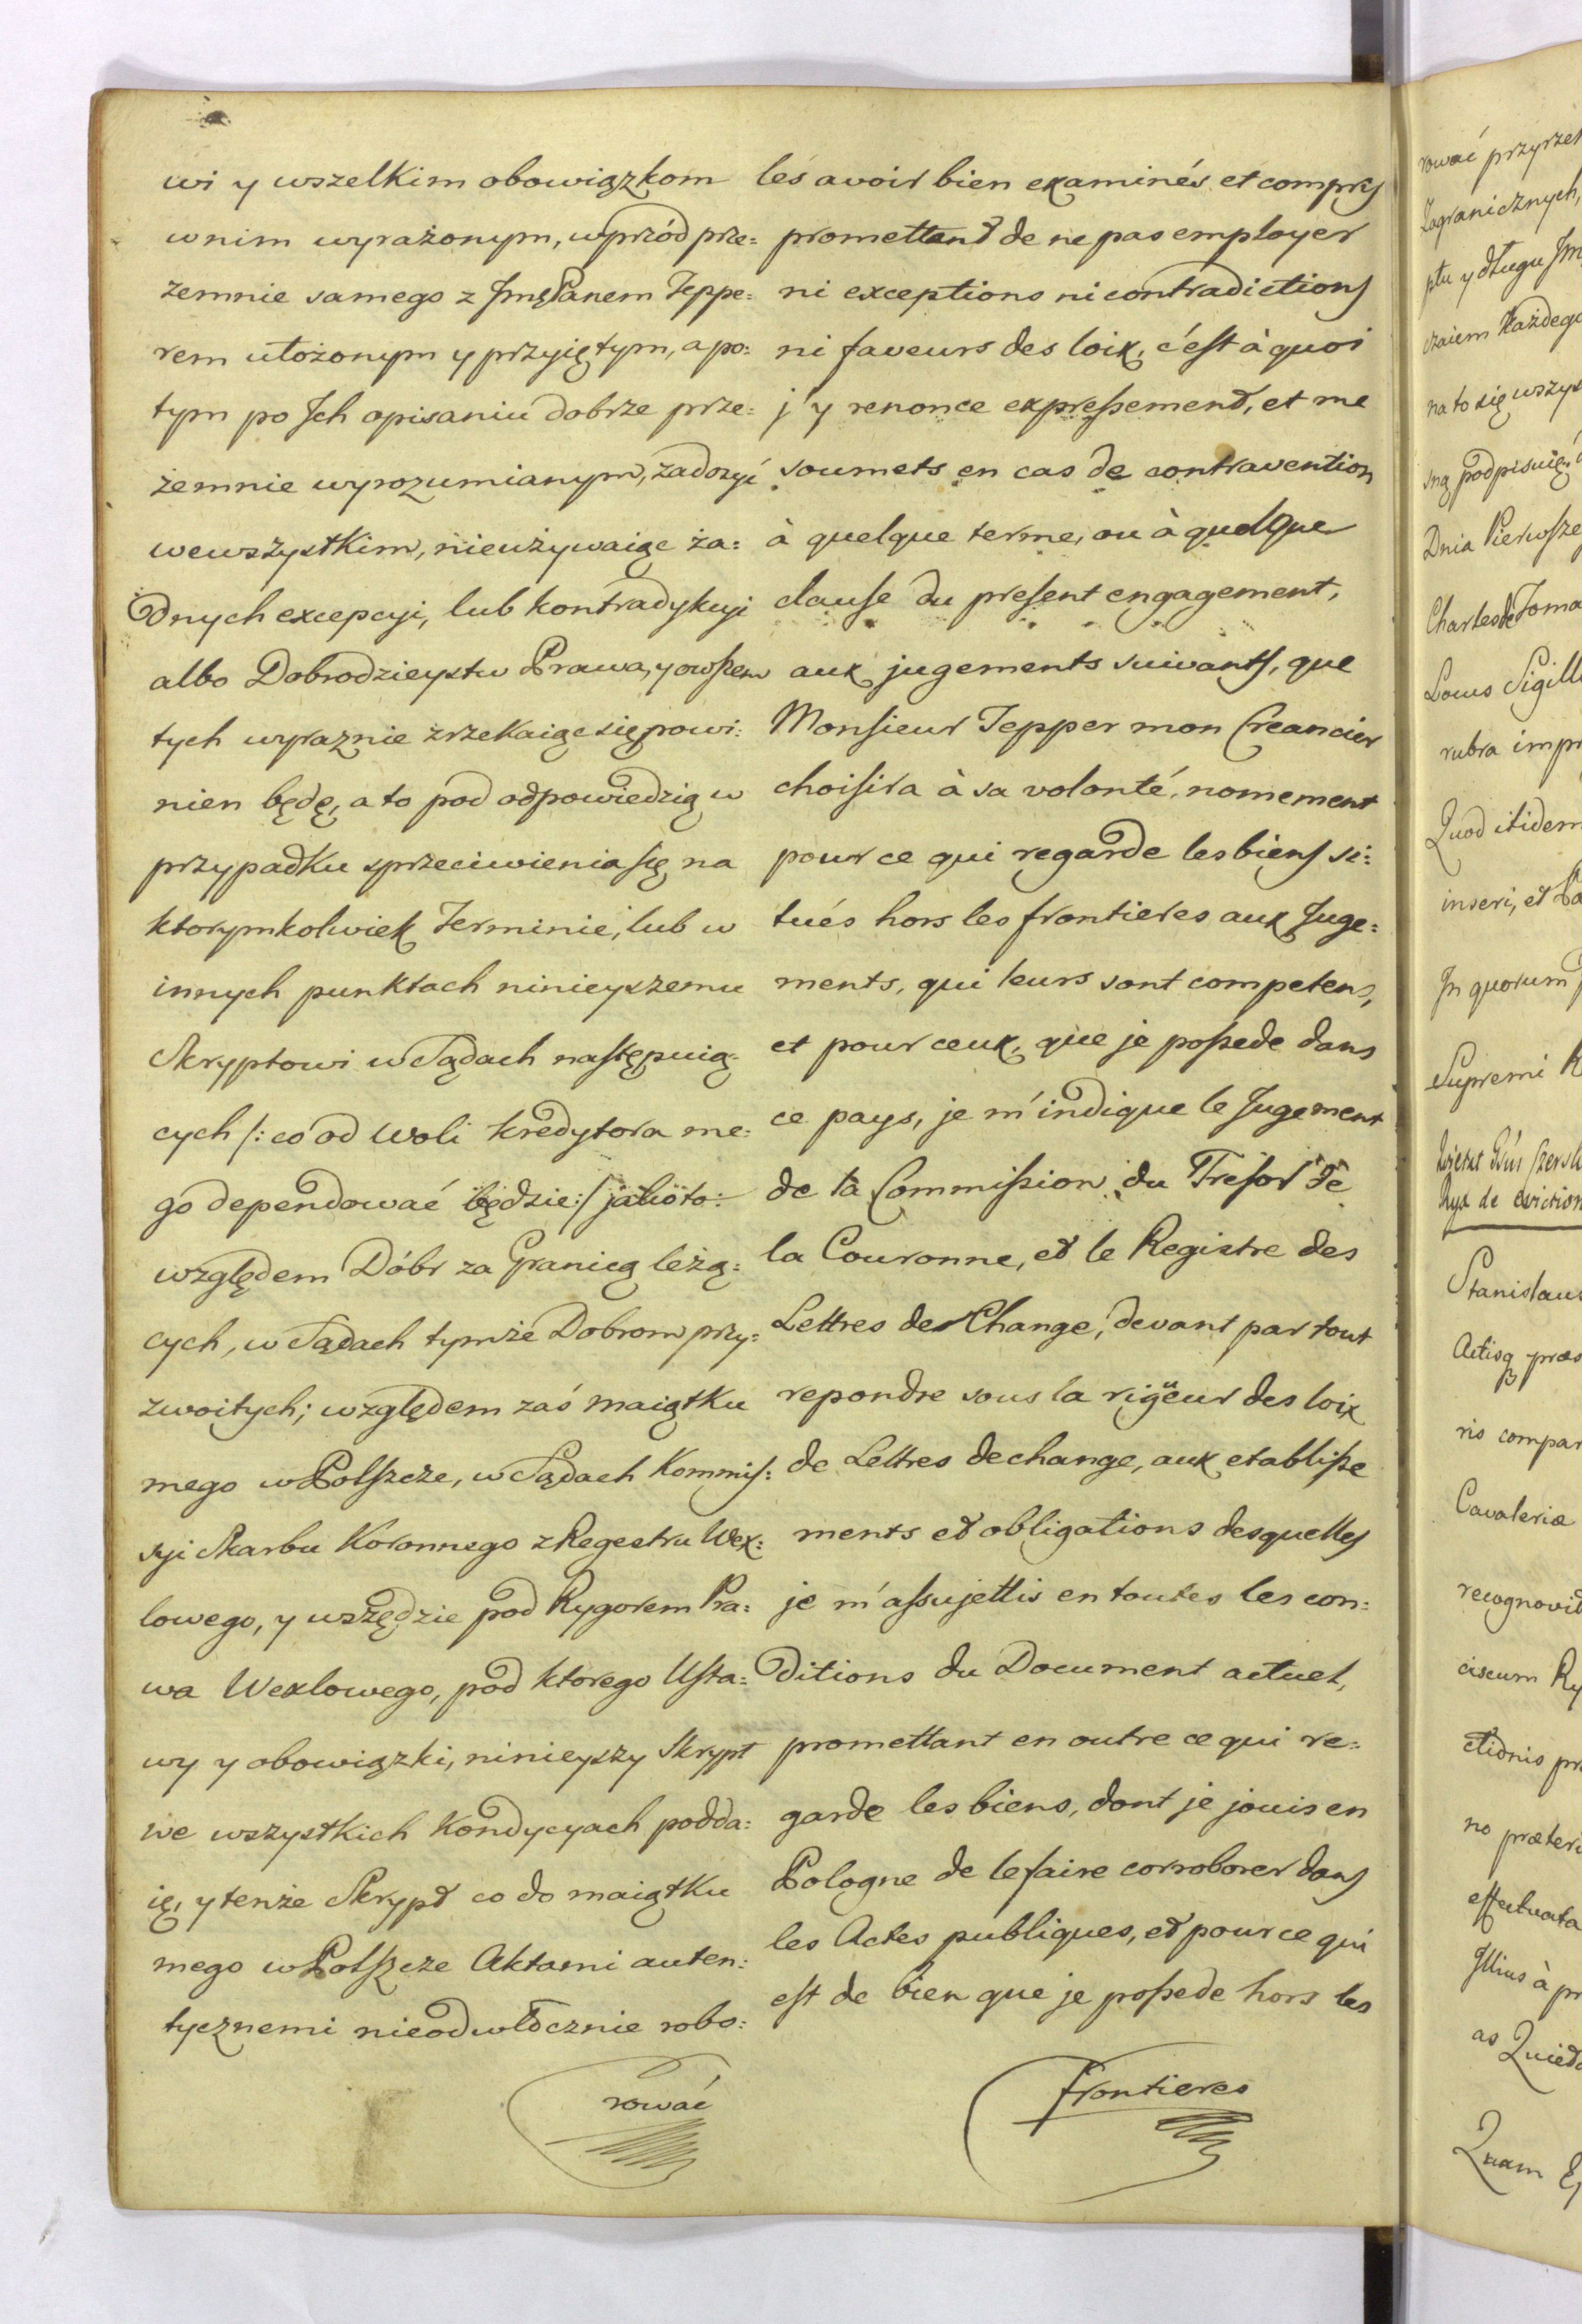 wi y wszelkim obowiązkom
wnim wyrażonym, wprzód prze=
zemnie samego z Jmę Panem Teppe=
rem ułożonym y przyiętym, a po=
tym po Jch opisaniu dobrze prze=
żemnie wyrozumianym, zadosyć
wewszystkim, nieużywaiąc ża=
dnych excepcyi, lub kontradykcyi
albo Dobrodzieystw Prawa, y owszem
tych wyraznie zrzekaiąc się powi=
nien będę, a to pod odpowiedzią w
przypadku sprzeciwienia się na
ktorymkolwiek Terminie, lub w
innych punktach ninieyszemu
Skryptowi w Sądach następuią=
cych /: co od Woli Kredytora me=
go dependować będzie :/ jako to:
względem Dóbr za Granicą leżą=
cych, w Sądach tymże Dobrom przy=
zwoitych; względem zaś maiątku
mego w Polszcze, w Sądach Kommis=
syi Skarbu Koronnego z Regestru Wex=
lowego, y wszędzie pod Rygorem Pra=
wa Wexlowego, pod ktorego Usta=
wy y obowiązki, ninieyszy Skrypt
we wszystkich Kondycyach podda=
ię, y tenże Skrypt co do maiątku
mego w Polszcze Aktami auten=
tycznemi nieodwłocznie robo=
rować
les avoir bien examinés et compris
promettant de ne pas employer
ni exceptions ni contradictions
ni faveurs des loix, c'est à quoi
j'y renonce expressement, et me
soumets en cas de contravention
à quelque terme, ou à quelque
clause du present engagement,
aux jugements suivants, que
Monsieur Tepper mon Creancier
choisira à sa volonté, nomement
pour ce qui regarde les biens si=
tués hors les frontieres aux Juge=
ments, qui leurs sont competens,
et pour ceux, que je possede dans
ce pays, je m'indique le Jugement
de la Commission du Tresor de
la Couronne, et le Registre des
Lettres de Change, devant par tout
repondre sous la rigëur des loix
de Lettres de change, aux etablisse
ments et obligations desquelles
je m'assujettis en toutes les con=
ditions du Document actuel,
promettant en outre ce qui re=
garde les biens, dont je jouis en
Pologne de le faire corroborer dans
les Actes publiques, et pour ce qui
est de bien que je possede hors les
frontieres
rować przyrzek
Zagranicznych,
ptu y długu Jm
czaiem Każdego
na to się wszys
sną podpisuię
Dnia Pierwsze
Charles de Toma
Locus Sigill
rubra impr
Quod itidem
inseri, et
In quorum
Supremi
Stanislaus
Actisq præs
ris compar
Cavaleriæ
recognovit
ciscum Ry
no præteri
effectuata
Illius à pr
as Quied
Quam